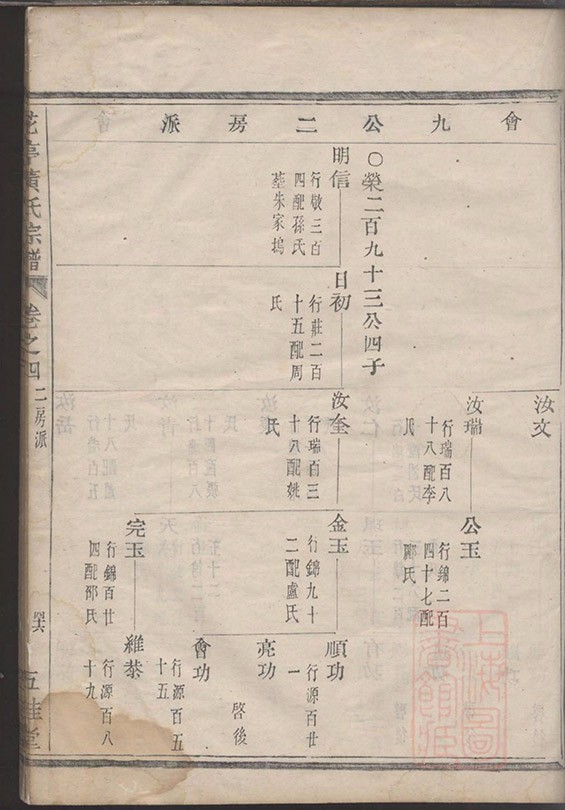 會九公二房派
汝文
汝瑞
行瑞百八
十八配李
氏
公玉
行錦二百
四十七配
鄺氏
○榮二百九十三公四子
明信
行敬三百
四配孫氏
墓朱家塢
日初
行莊二百
十五配周
氏
汝奎
行瑞百三
十八配姚
氏
金玉
行錦九十
二配盧氏
順功
行源百廿
一
亮功
啓後
會功
行源百五
十五
完玉
行錦百廿
四配邵氏
維恭
行源百八
十九
花亭黃氏宗譜
卷之四
二房派
五桂堂
上海圖書館藏